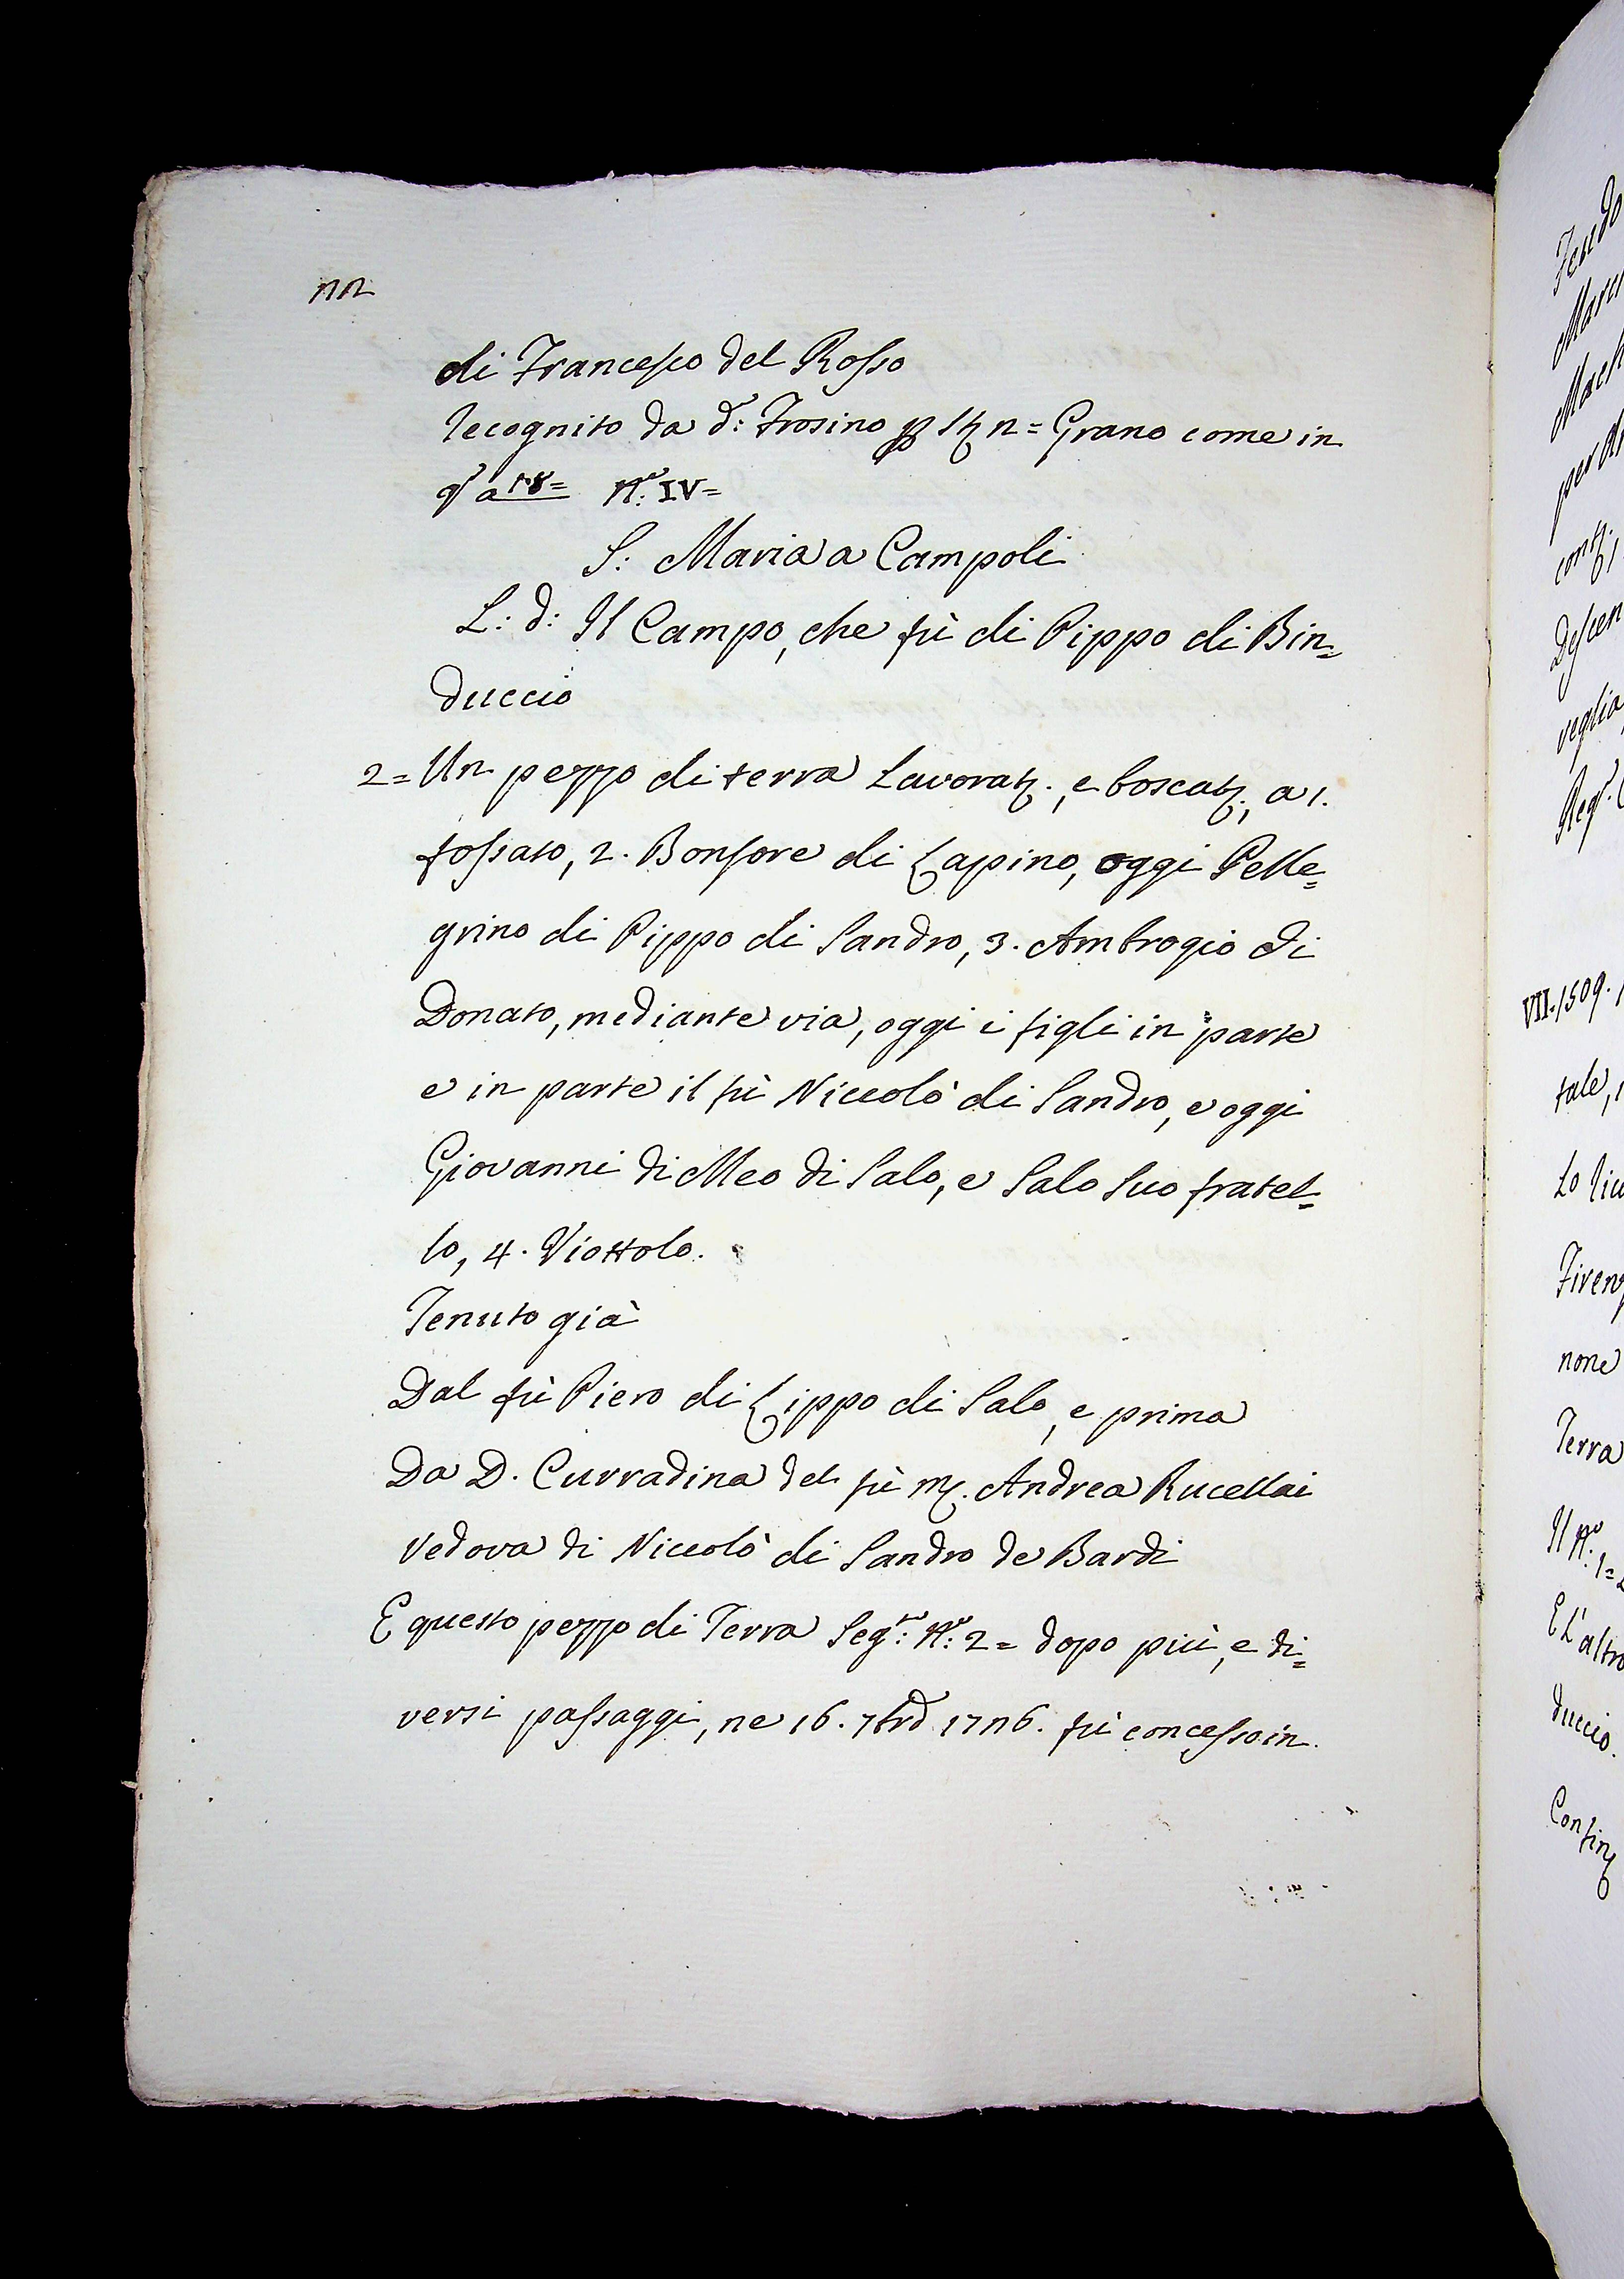 di Francesco del Rosso
Recognito da d: Frosino Grano come in
N: IV=
S: Maria a Campoli
L: d: Il Campo, che fù di Pippo di Bin=
duccio
2= Un pezzo di terra Lavorat., e boscat., a 1.
fossato, 2. Bonsore di Lapino, oggi Pelle=
grino di Pippo di Sandro, 3. Ambrogio di
Donato, mediante via, oggi i figli in parte
e in parte il fù Niccolò di Sandro, e oggi
Giovanni di Meo di Salo, e Salo suo fratel=
lo, 4. Viottolo.
Tenuto già
Dal fù Piero di Lippo di Salo, e prima
Da D. Curradina del fù M. Andrea Rucellai
Vedova di Niccolò di Sandro de Bardi
E questo pezzo di Terra Seg: N: 2= dopo più, e di=
versi passaggi, ne 16. 7bre fù concesso in
Feudo
VII. 1509.
tale,
none
Terra
E L'altro
duccio.